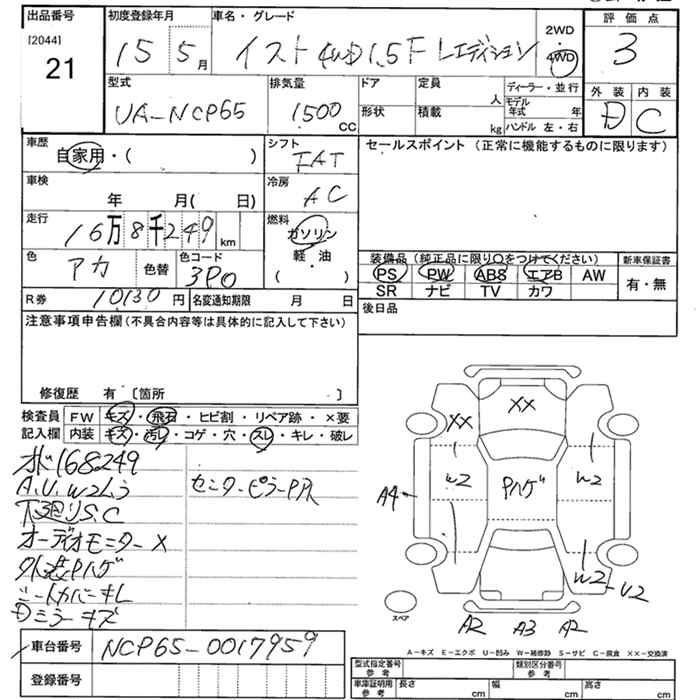 出品番号 初度登録年月 車名・グレード 2WD 評価点
[2044] 21 15 5月 イスト4WD1.5F Lエディション ・ 4WD 3
型式 排気量 ドア 定員 ディーラー・並行 外装 内装
UA-NCP65 1500 CC 形状 積載 人 モデル年式 年 D C
kg ハンドル 左・右
車歴 シフト セールスポイント (正常に機能するものに限ります)
自家用・( ) FAT
車検 冷房
年 月( 日) AC
走行 燃料
16万8千249 km ガソリン
色 色替 色コード 軽・油 装備品 (純正品に限り○をつけてください) 新車保証書
アカ 3P0 ( ) PS PW ABS エアB AW 有・無
SR ナビ TV カワ
R券 10130円 名変通知期限 月 日 後日品
注意事項申告欄 (不具合内容等は具体的に記入して下さい)
修復歴 有 〔箇所 〕
検査員 FW キズ・飛石・ヒビ割・リペア跡・×要
記入欄 内装 キズ・汚レ・コゲ・穴・スレ・キレ・破レ
168249
A.U.W2
下廻りS.C
センターピラーP
オーディオモニター×
外装Pハゲ
シートカバーキレ
Dミラーキズ
XX
XX
W2
Pハゲ
W2
A4
W2
U2
スペア
A2 A3 A2
A-キズ E-エクボ U-凹み W-補修跡 S-サビ C-腐食 XX-交換済
車台番号 NCP65-0017959
登録番号
型式指定番号 参考 類別区分番号 参考
車庫証明用 参考 長さ cm 幅 cm 高さ cm